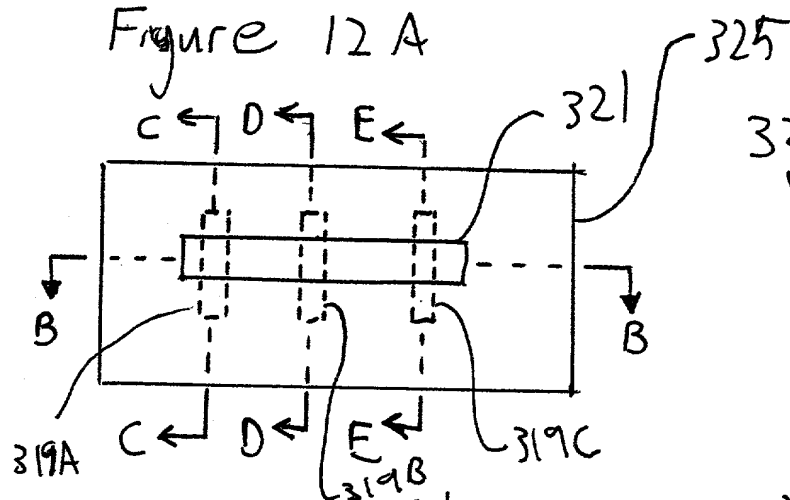 Figure 12A
325
321
C D E
B B
C D E
319A
319B
319C